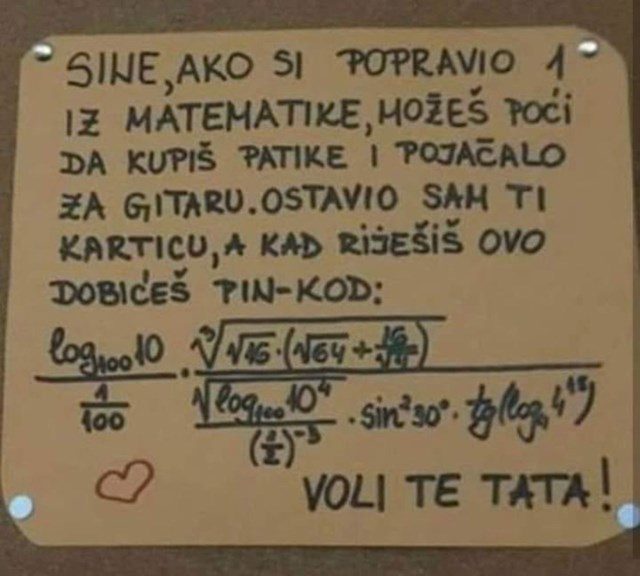 SINE, AKO SI POPRAVIO 1
IZ MATEMATIKE, MOŽEŠ POĆI
DA KUPIŠ PATIKE I POJAČALO
ZA GITARU. OSTAVIO SAM TI
KARTICU, A KAD RIJEŠIŠ OVO
DOBIĆEŠ PIN-KOD:
log₁₀₀10 / (1/100) · ∛(√16 · (√64 +
√(log₁₀₀10⁴) / (1/2)⁻³ · sin²30° · tg(log₄4
VOLI TE TATA!